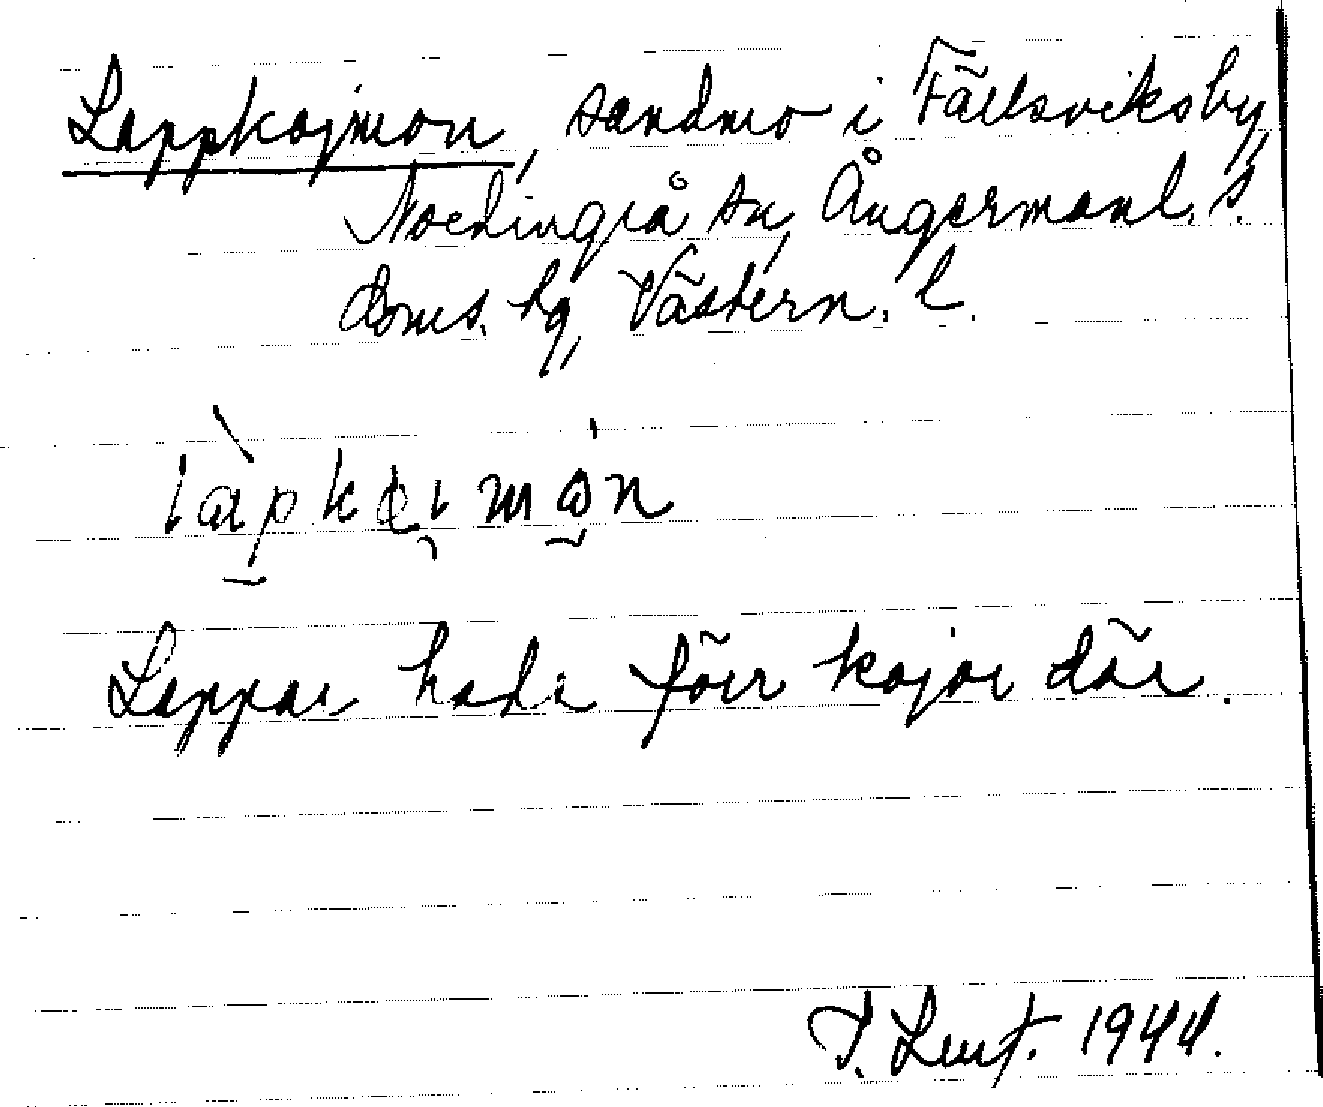 Lappkojmon, sandmo i Fällsviksby,
Nordingrå sn, Ångermanl. s.
doms. hg, Västern. l.
Lappar hade förr kojor där.
1944.